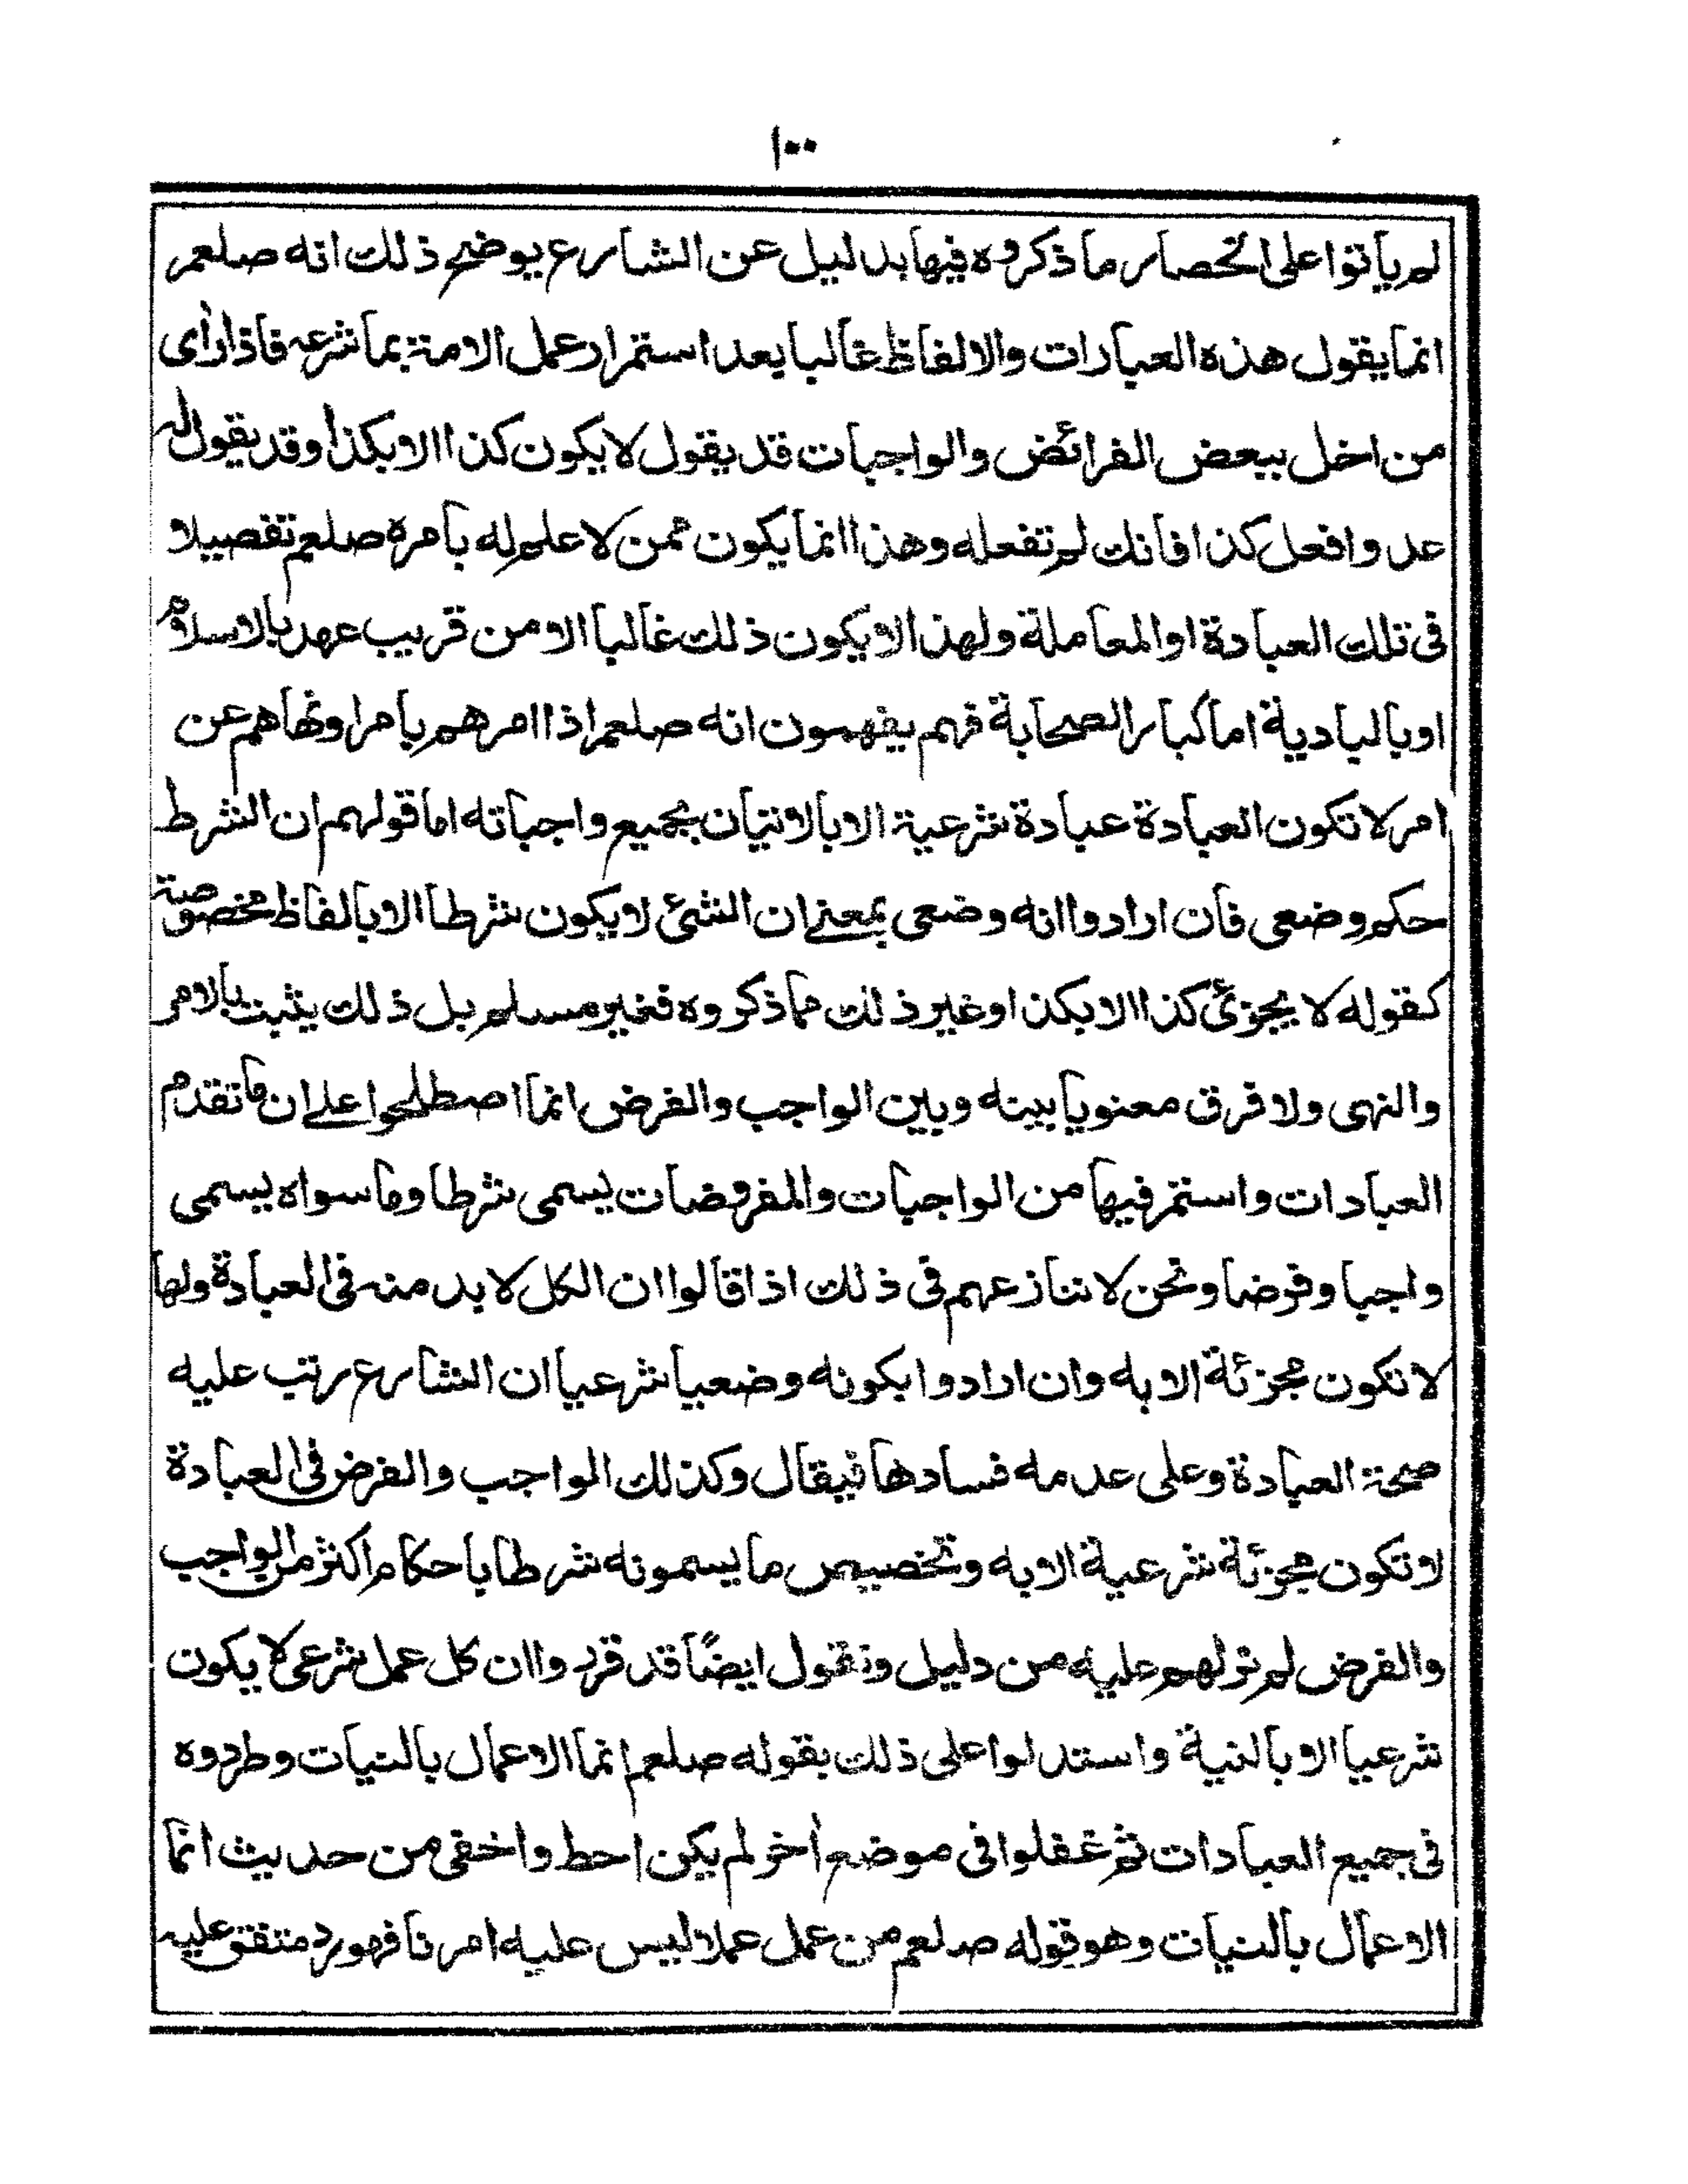 ١٠٠
لم يأتوا على انحصار ما ذكروه فيها بدليل عن الشارع يوضح ذلك انه صلعم
انما يقول هذه العبارات والالفاظ غالبا بعد استمرار عمل الامة بما شرعه فاذا رأى
من اخل ببعض الفرائض والواجبات قد يقول لا يكون كذا الا بكذا وقد يقول له
عد وافعل كذا فانك لم تفعله وهذا انما يكون ممن لا علم له بأمره صلعم تفصيلا
فى تلك العبادة او المعاملة ولهذا لا يكون ذلك غالبا الا من قريب عهد بالاسلام
او بالبادية اما كبار الصحابة فهم يفهمون انه صلعم اذا امرهم بأمر او نهاهم عن
امر لا تكون العبادة عبادة شرعية الا بالاتيان بجميع واجباته اما قولهم ان الشرط
حكم وضعى فان ارادوا انه وضعى بمعنے ان الشئ لا يكون شرطا الا بالفاظ مخصوصة
كقوله لا يجزئ كذا الا بكذا وغير ذلك مما ذكروه فغير مسلم بل ذلك يثبت بالامر
والنهى ولا فرق معنويا بينه وبين الواجب والفرض انما اصطلحوا علے ان ما تقدم
العبادات واستمر فيها من الواجبات والمفروضات يسمى شرطا وما سواه يسمى
واجبا وفرضا ونحن لا ننازعهم فى ذلك اذا قالوا ان الكل لا بد منه فى العبادة ولها
لا تكون مجزئة الا به وان ارادوا بكونه وضعيا شرعيا ان الشارع رتب عليه
صحة العبادة وعلى عدمه فسادها فيقال وكذلك الواجب والفرض فى العبادة
لا تكون مجزئة شرعية الا به وتخصيص ما يسمونه شرطا باحكام اكثر من الواجب
والفرض لم نر لهم عليه من دليل ونقول ايضًا قد قرروا ان كل عمل شرعى لا يكون
شرعيا الا بالنية واستدلوا على ذلك بقوله صلعم انما الاعمال بالنيات وطردوه
فى جميع العبادات ثم غفلوا فى موضع أخر لم يكن احط واخفى من حديث انما
الاعمال بالنيات وهو قوله صلعم من عمل عملا ليس عليه امرنا فهو رد متفق عليه